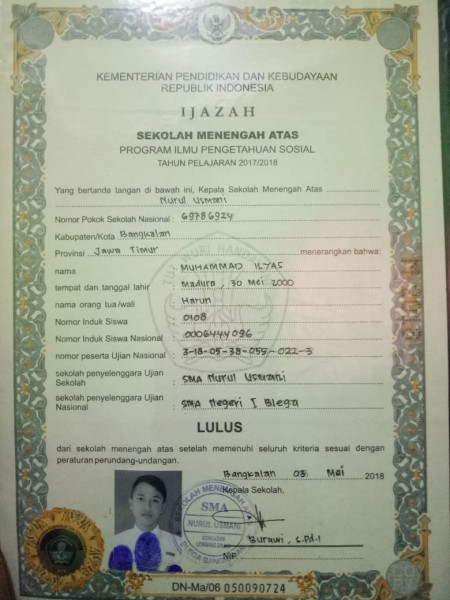 KEMENTERIAN PENDIDIKAN DAN KEBUDAYAAN
REPUBLIK INDONESIA
IJAZAH
SEKOLAH MENENGAH ATAS
PROGRAM ILMU PENGETAHUAN SOSIAL
TAHUN PELAJARAN 2017/2018
Yang bertanda tangan di bawah ini, Kepala Sekolah Menengah Atas
Nurul Usmani
Nomor Pokok Sekolah Nasional : 69786924
Kabupaten/Kota Bangkalan
Provinsi Jawa Timur menerangkan bahwa:
nama : MUHAMMAD ILYAS
tempat dan tanggal lahir : Madura, 30 Mei 2000
nama orang tua/wali : Harun
Nomor Induk Siswa : 0108
Nomor Induk Siswa Nasional : 0006444096
nomor peserta Ujian Nasional : 3-18-05-38-055-022-3
sekolah penyelenggara Ujian
Sekolah : SMA Nurul Usmani
sekolah penyelenggara Ujian
Nasional : SMA Negeri I Blega
LULUS
dari sekolah menengah atas setelah memenuhi seluruh kriteria sesuai dengan
peraturan perundang-undangan.
Bangkalan 03 Mei 2018
Kepala Sekolah,
SEKOLAH MENENGAH ATAS
SMA
NURUL USMANI
Burawi, S.Pd.I
NIP.
DN-Ma/06 050090724
TUT WURI HANDAYANI